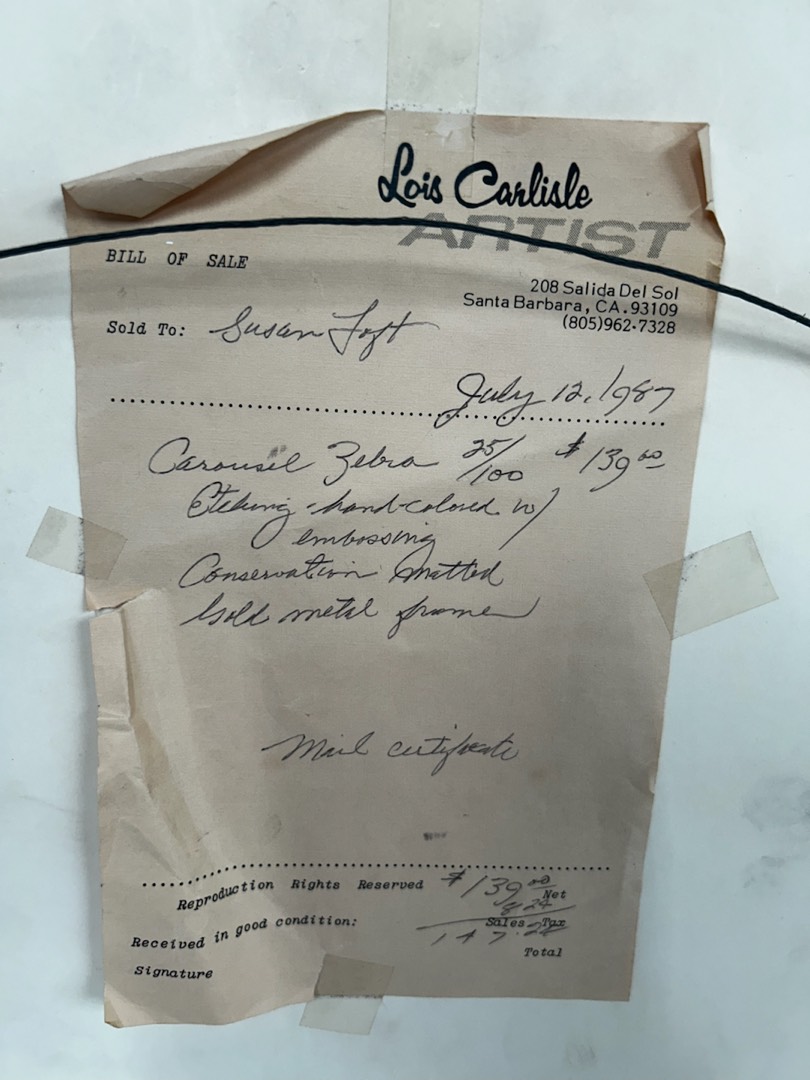 Lois Carlisle
ARTIST
BILL OF SALE
208 Salida Del Sol
Santa Barbara, CA. 93109
(805)962-7328
Sold To: Susan
July 12, 1987
Carousel Zebra 25/100 $139.00
Etching - hand-colored w/
embossing
Conservation matted
Gold metal frame
Mail certificate
Reproduction Rights Reserved $139.00 Net
8.24 Sales Tax
Received in good condition: 147.24
Total
Signature